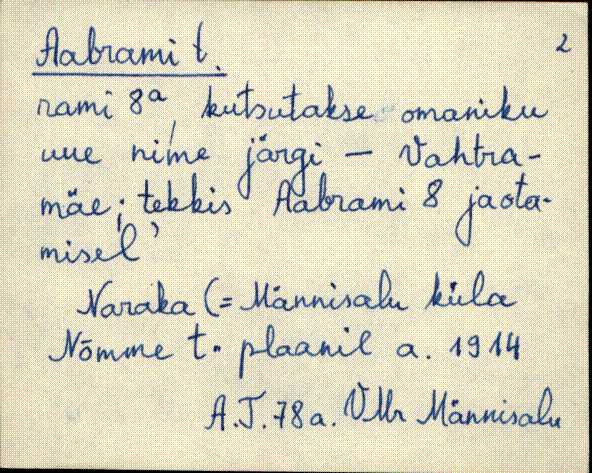 Aabrami t. 2
rami 8a, kutsutakse omaniku
uue nime järgi — Vahtra-
mäe; tekkis Aabrami 8 jaota-
misel’
Naraka (= Männisalu küla
Nõmme t. plaanil a. 1914
A.J. 78a. VMr Männisalu